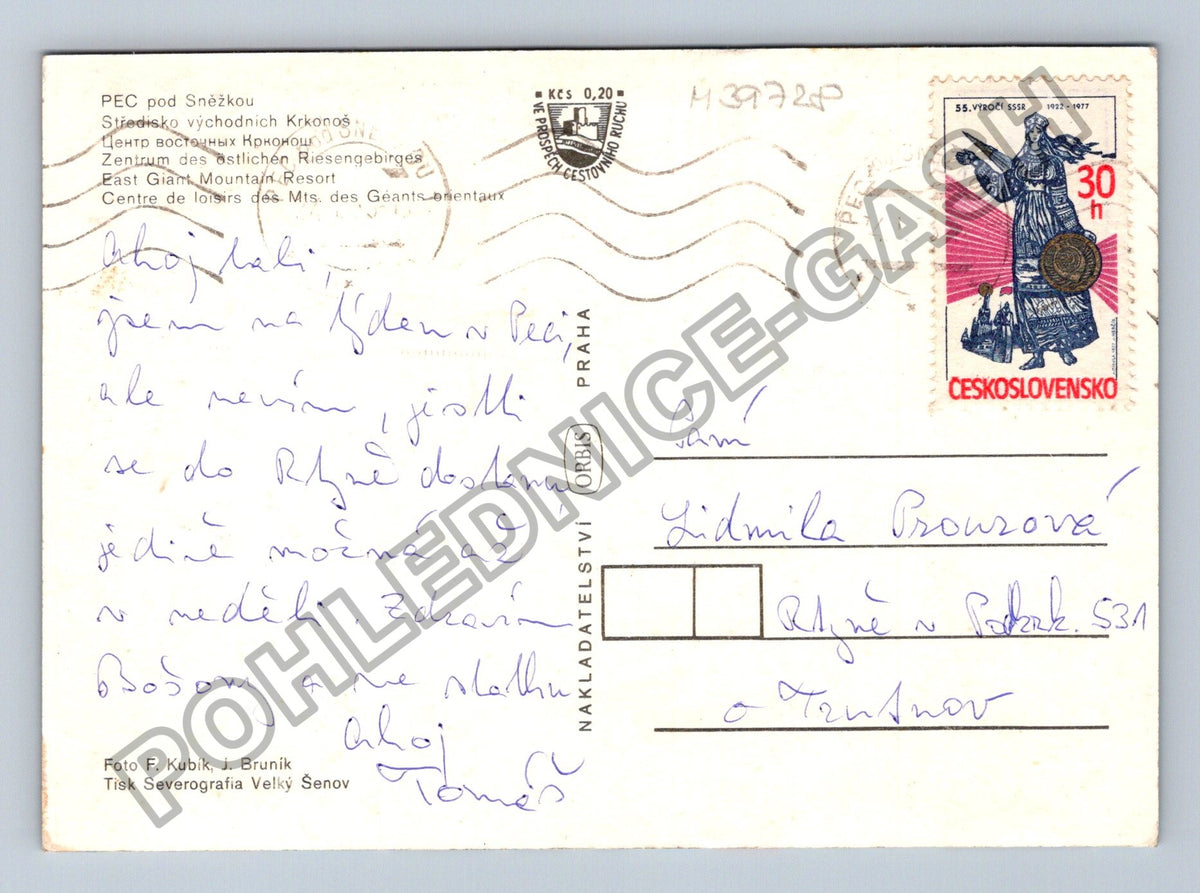 PEC pod Sněžkou
Středisko východních Krkonoš
Центр восточных Крконош
Zentrum des östlichen Riesengebirges
East Giant Mountain Resort
Centre de loisirs des Mts. des Géants orientaux
Kčs 0,20
VE PROSPĚCH CESTOVNÍHO RUCHU
M39728
55. VÝROČÍ SSSR 1922-1977
30 h
ČESKOSLOVENSKO
Ahoj
jsem na týden v Peci,
ale nevím, jestli
se do Rtyně dostanu
jedině možná až
v neděli. Zdravím
Ahoj
Tomáš
Foto F. Kubík, J. Bruník
Tisk Severografia Velký Šenov
NAKLADATELSTVÍ ORBIS PRAHA
Paní
Lidmila Prouzová
Rtyně v Podkrk. 531
o Trutnov
POHLEDNICE-GASH